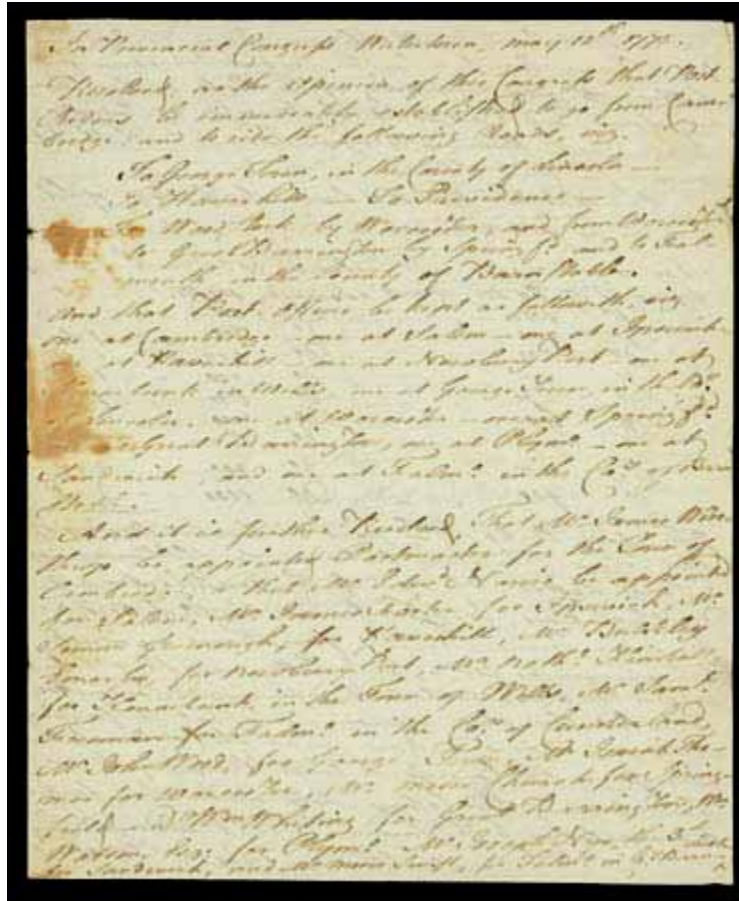 In Provincial Congress Watertown, May 12th 1775.
Resolved, as the opinion of this Congress that Post
Riders be immediately established to go from Cam
bridge, and to ride the following Roads, viz.
To George Town, in the County of Lincoln —
to Haverhill — To Providence —
to Great Barrington by Springfd. and to Fal
mouth in the county of Barnstable.
And that Post Offices be kept as followeth, viz
one at Cambridge one at Salem — one at Ipswich
at Haverhill — one at Newbury Port one at
Kennebunk in Wells one at George Town in the
one at Worcester — one at Springfd.
Great Barrington, one at Plymo. — one at
Sandwich, and one at Falmo. in the Co. of Barn
And it is further Resolved, That Mr. James Win
throp be appointed Postmaster for the Town of
that Mr. Edwd. Norris be appointed
for Salem, Mr. for Ipswich, Mr.
Simeon Greenough, for Haverhill, Mr. Bulkley
for Newbury Port, Mr. Nathl. Kimball
for Kennebunk, in the Town of Wells, Mr. Saml.
Freeman for Falmo. in the Co. of Cumberland,
Mr. John Wood, for George Town, Mr. Isaiah Tho-
mas for Worcester, Mr. Moses Church for Spring-
field and Wm. Whiting for Great Barrington, Mr.
Watson, for Plymo. Mr. Joseph
for Sandwich, and Mr. Swift, for Falmo. in